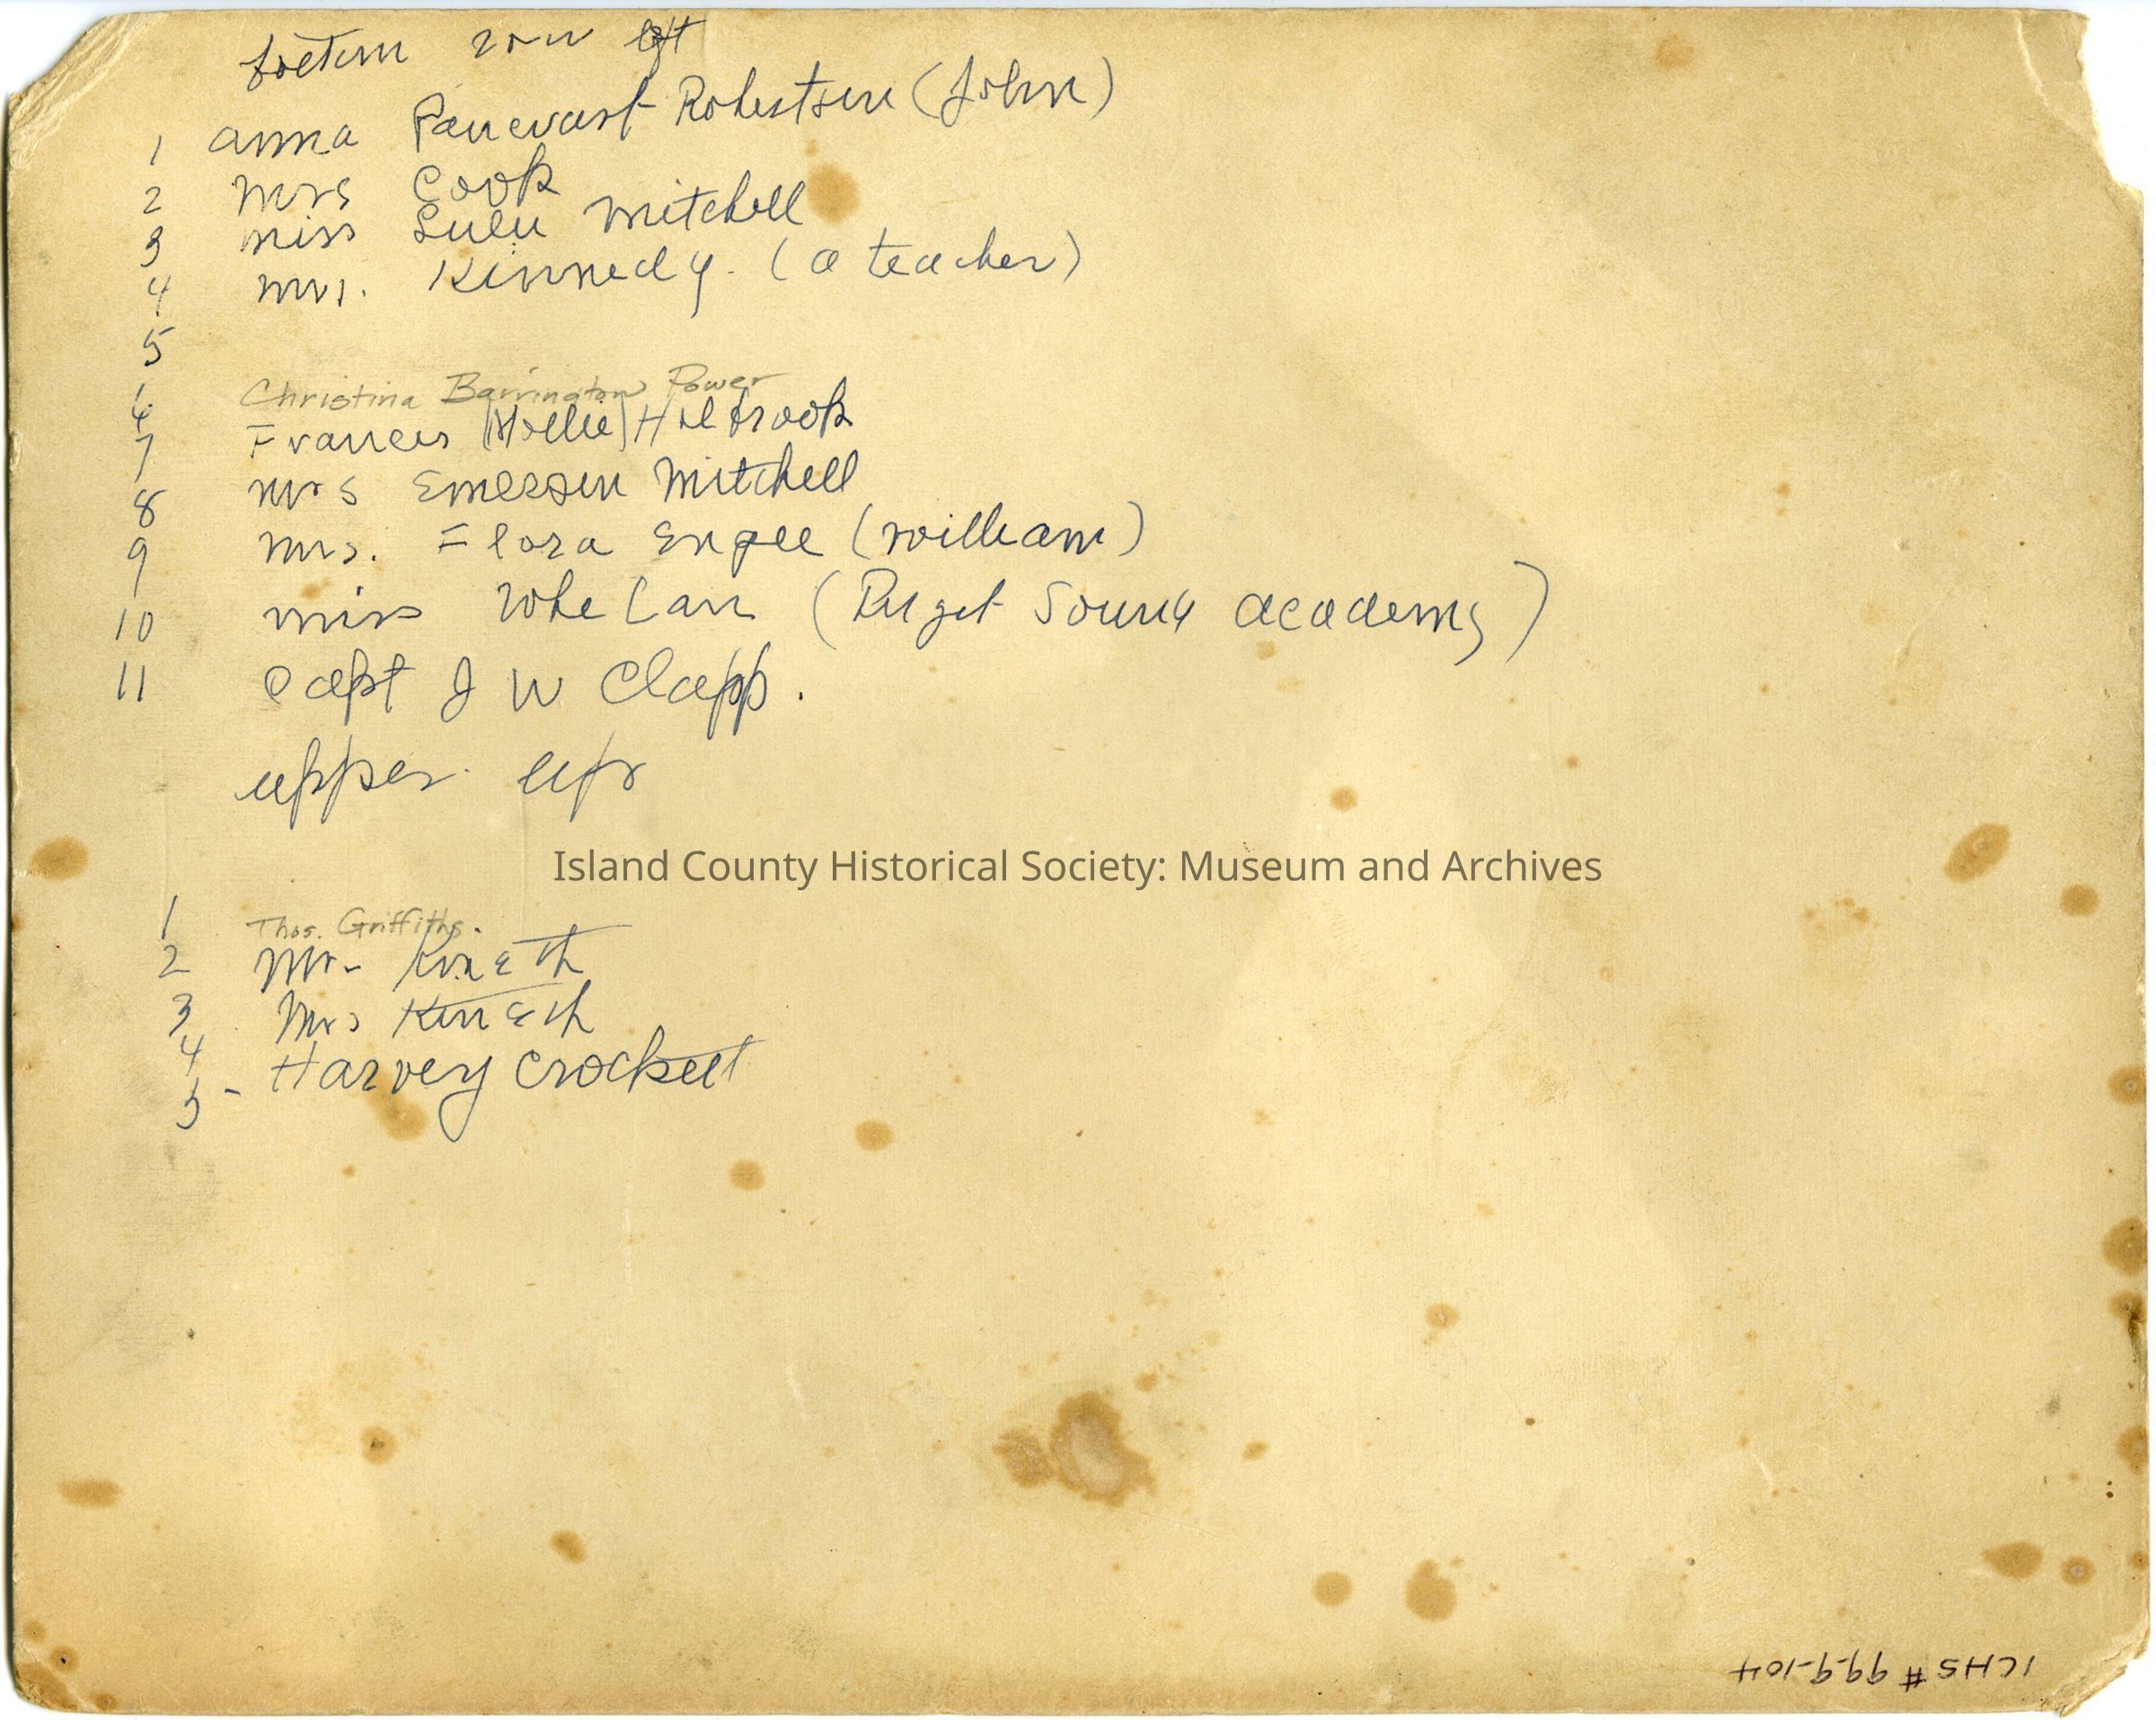 bottom row left
1 anna Pancvast Robertson (John)
2 mrs Cook
3 miss Lulu mitchell
4 mrs. Kinnedy. (a teacher)
5
Christina Barrington Power
6 Frances (Mollie) Holbrook
7
8 mrs Emerson Mitchell
9 mrs. Flora Engle (william)
10 miss Whelan (Puget Sound academy)
11 Capt J W Clapp.
upper
Island County Historical Society: Museum and Archives
1 Thos. Griffiths.
2 Mr. Kineth
3 Mrs Kineth
4 Harvey Crockett
5
ICHS # 999-104